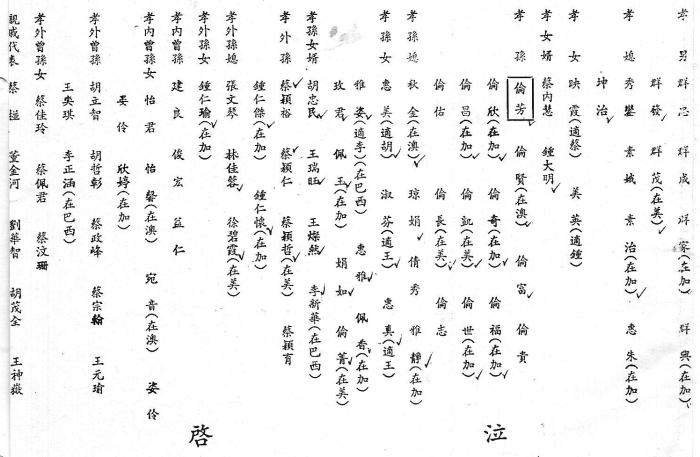 孝男 群忍 群成 群家(在加) 群興(在加)
群發 群茂(在美)
坤治
孝媳 秀鑾 素娥 素治(在加) 惠朱(在加)
孝女 映霞(適蔡) 美英(適鍾)
孝女婿 蔡內慧 鍾大明
孝孫 倫芳 倫賢(在澳) 倫富 倫貴
倫欣(在加) 倫奇(在加) 倫福(在加)
倫昌(在加) 倫凱(在美) 倫世(在加)
倫佑 倫長(在美) 倫志
孝孫媳 秋金(在澳) 琼娟 倩秀 雅靜(在加)
孝孫女 惠美(適胡) 淑芬(適王) 惠真(適王)
雅姿(適李)(在巴西) 惠雅 佩香(在加)
玫君 佩玉(在加) 娟如 倫菁(在美)
孝孫女婿 胡忠民 王瑞旺 王燦然 李新華(在巴西)
孝外孫 蔡穎裕 蔡穎仁 蔡穎哲(在美) 蔡穎育
鍾仁傑(在加) 鍾仁懷(在加)
孝外孫媳 張文琴 林佳蓉 徐碧霞(在美)
孝外孫女 鍾仁瑜(在加)
孝內曾孫 建良 俊宏 益仁
孝內曾孫女 怡君 怡馨(在澳) 宛音(在澳) 姿伶
晏伶 欣婷(在加)
孝外曾孫 胡立智 胡哲彰 蔡政峰 蔡宗翰 王元瑜
王奕琪 李正涵(在巴西)
孝外曾孫女 蔡佳玲 蔡佩君 蔡汶珊
親戚代表 蔡 董金河 劉華智 胡茂全 王神嶽
泣啓